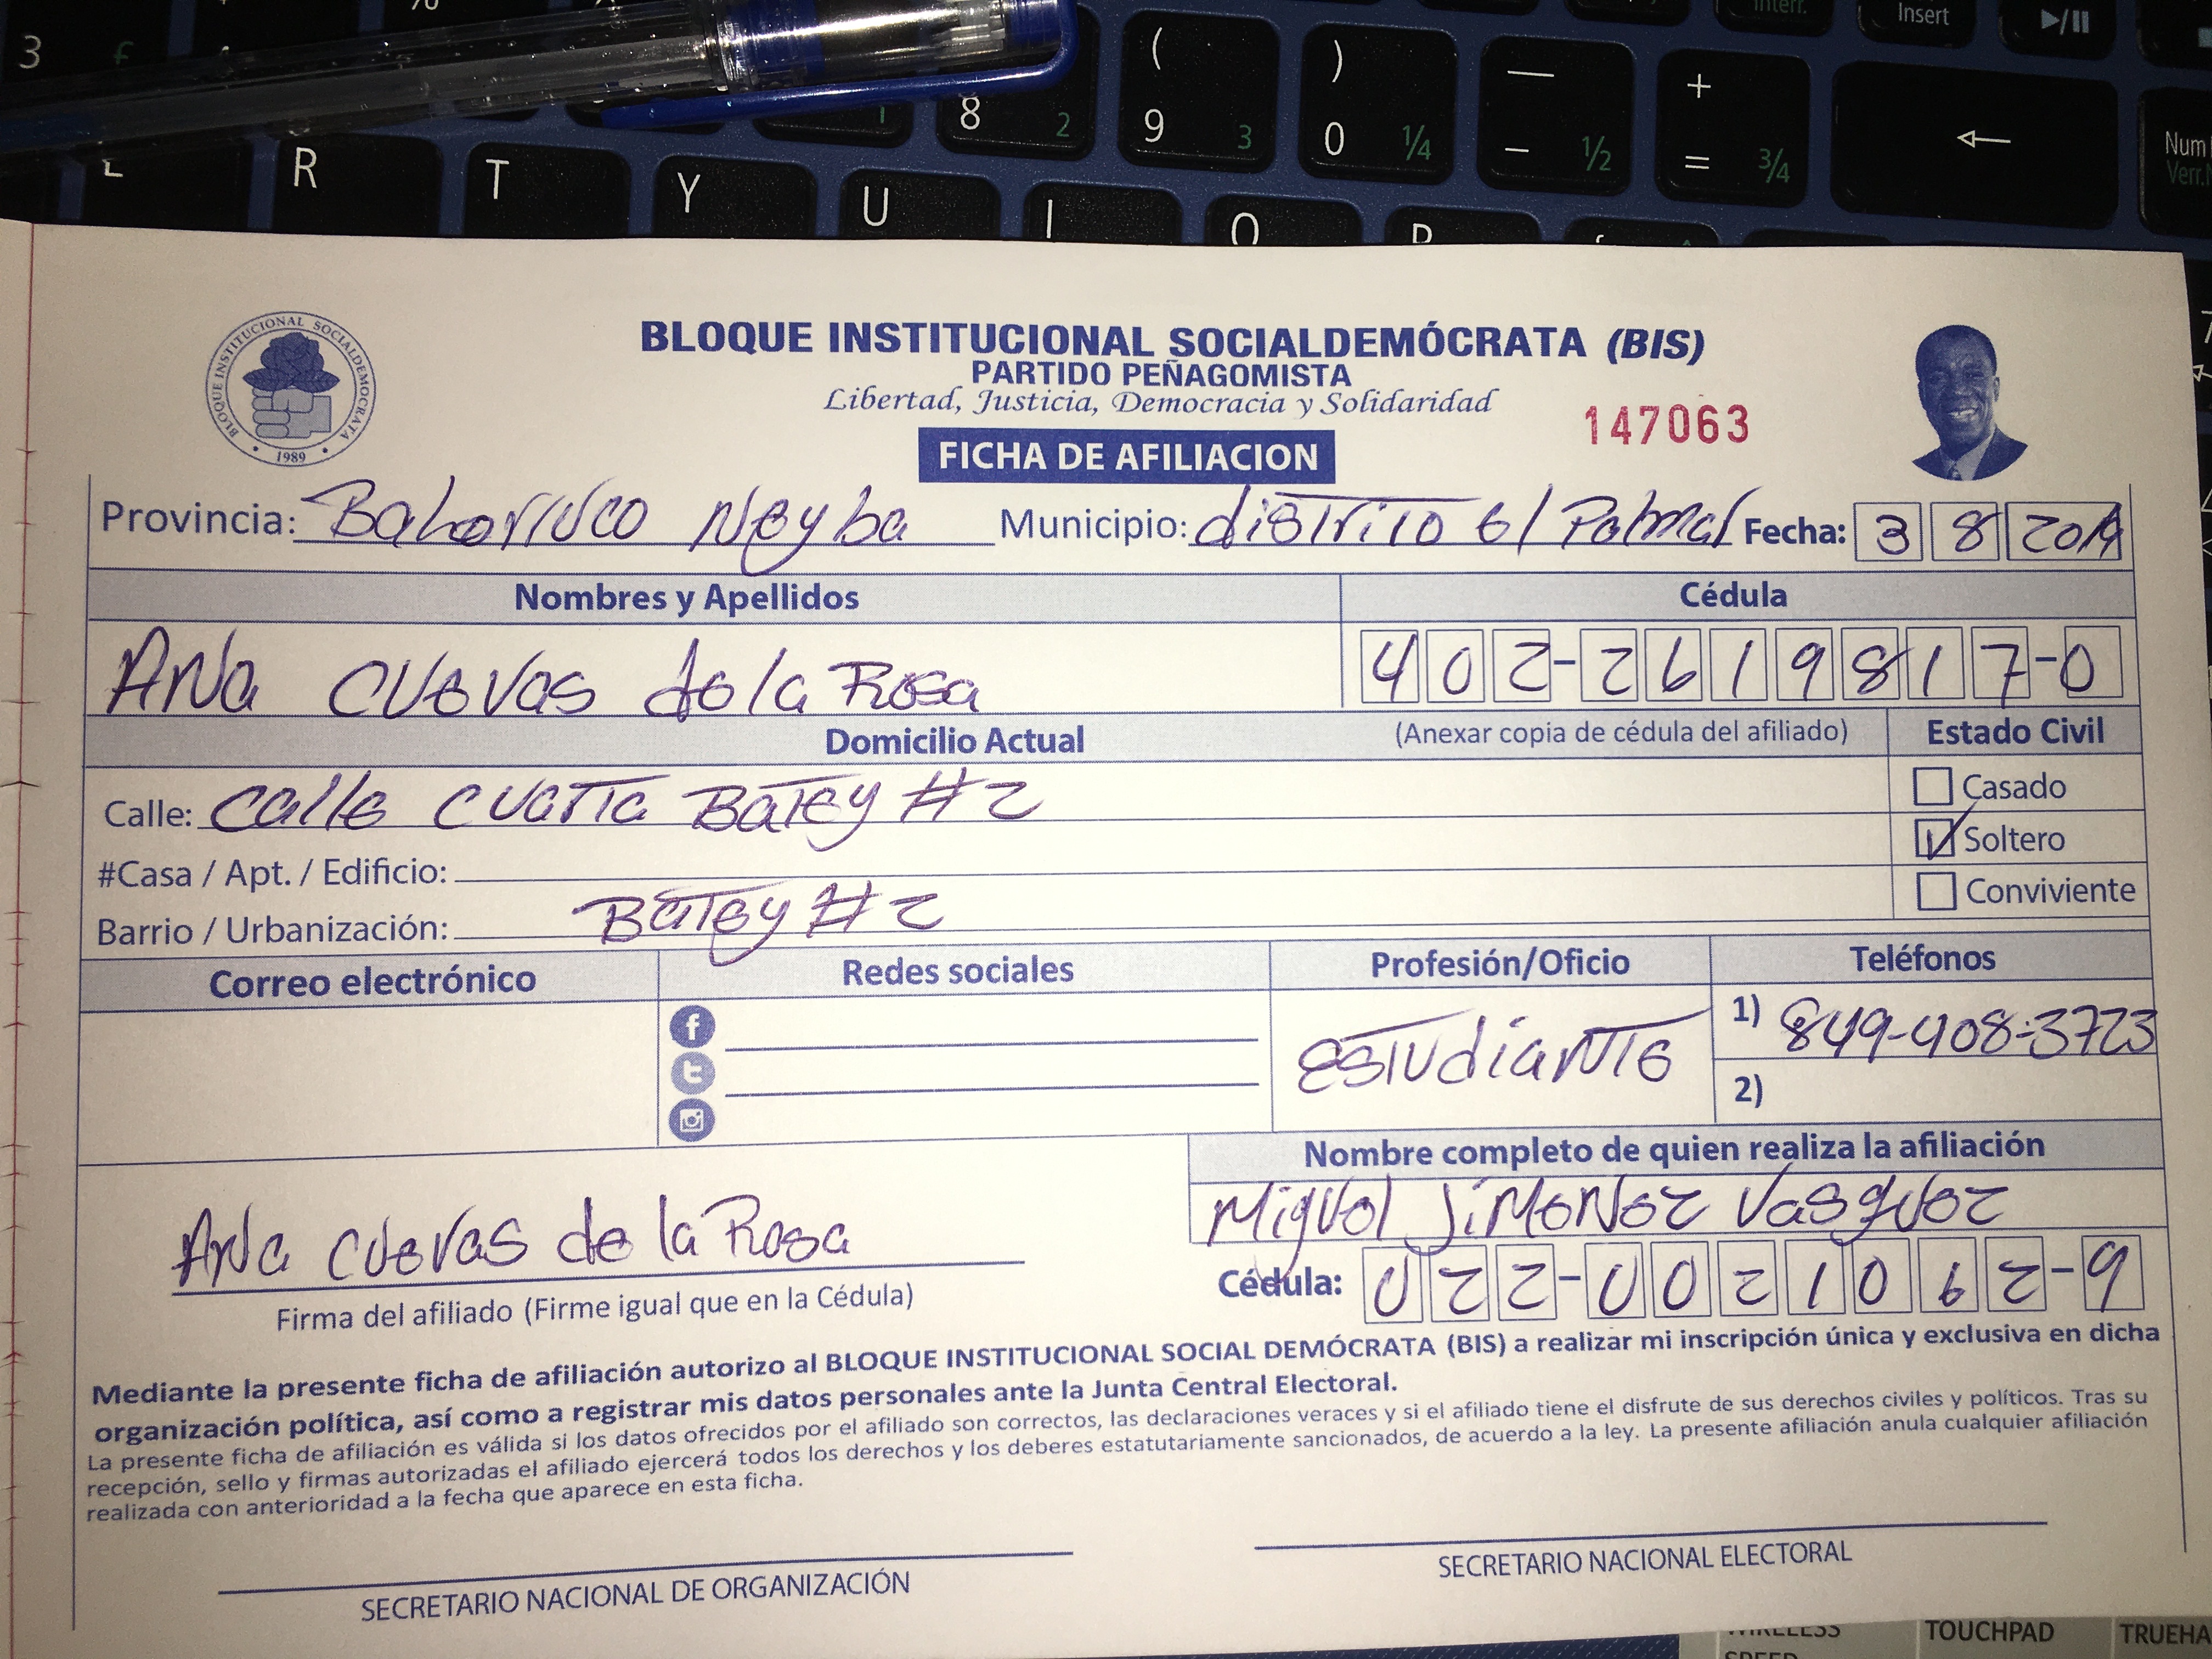 3 £
( ) — +
8 2 9 3 0 1/4 - 1/2 = 3/4
Insert
Num
R T Y U I O P
BLOQUE INSTITUCIONAL SOCIALDEMOCRATA
1989
BLOQUE INSTITUCIONAL SOCIALDEMÓCRATA (BIS)
PARTIDO PEÑAGOMISTA
Libertad, Justicia, Democracia y Solidaridad
147063
FICHA DE AFILIACION
Provincia: Bahoruco Neyba Municipio: distrito el Palmar Fecha: 3 8 2019
Nombres y Apellidos Cédula
Ana Cuevas de la Rosa 402-2619817-0
Domicilio Actual (Anexar copia de cédula del afiliado) Estado Civil
Calle: Calle Cuarta Batey #2 Casado
#Casa / Apt. / Edificio: Soltero
Barrio / Urbanización: Batey #2 Conviviente
Correo electrónico Redes sociales Profesión/Oficio Teléfonos
Estudiante 1) 849-408-3723
2)
Nombre completo de quien realiza la afiliación
Miguel Jimenez Vasquez
Ana Cuevas de la Rosa
Cédula: 022-0021062-9
Firma del afiliado (Firme igual que en la Cédula)
Mediante la presente ficha de afiliación autorizo al BLOQUE INSTITUCIONAL SOCIAL DEMÓCRATA (BIS) a realizar mi inscripción única y exclusiva en dicha
organización política, así como a registrar mis datos personales ante la Junta Central Electoral.
La presente ficha de afiliación es válida si los datos ofrecidos por el afiliado son correctos, las declaraciones veraces y si el afiliado tiene el disfrute de sus derechos civiles y políticos. Tras su
recepción, sello y firmas autorizadas el afiliado ejercerá todos los derechos y los deberes estatutariamente sancionados, de acuerdo a la ley. La presente afiliación anula cualquier afiliación
realizada con anterioridad a la fecha que aparece en esta ficha.
SECRETARIO NACIONAL DE ORGANIZACIÓN SECRETARIO NACIONAL ELECTORAL
WIRELESS TOUCHPAD
SPEED